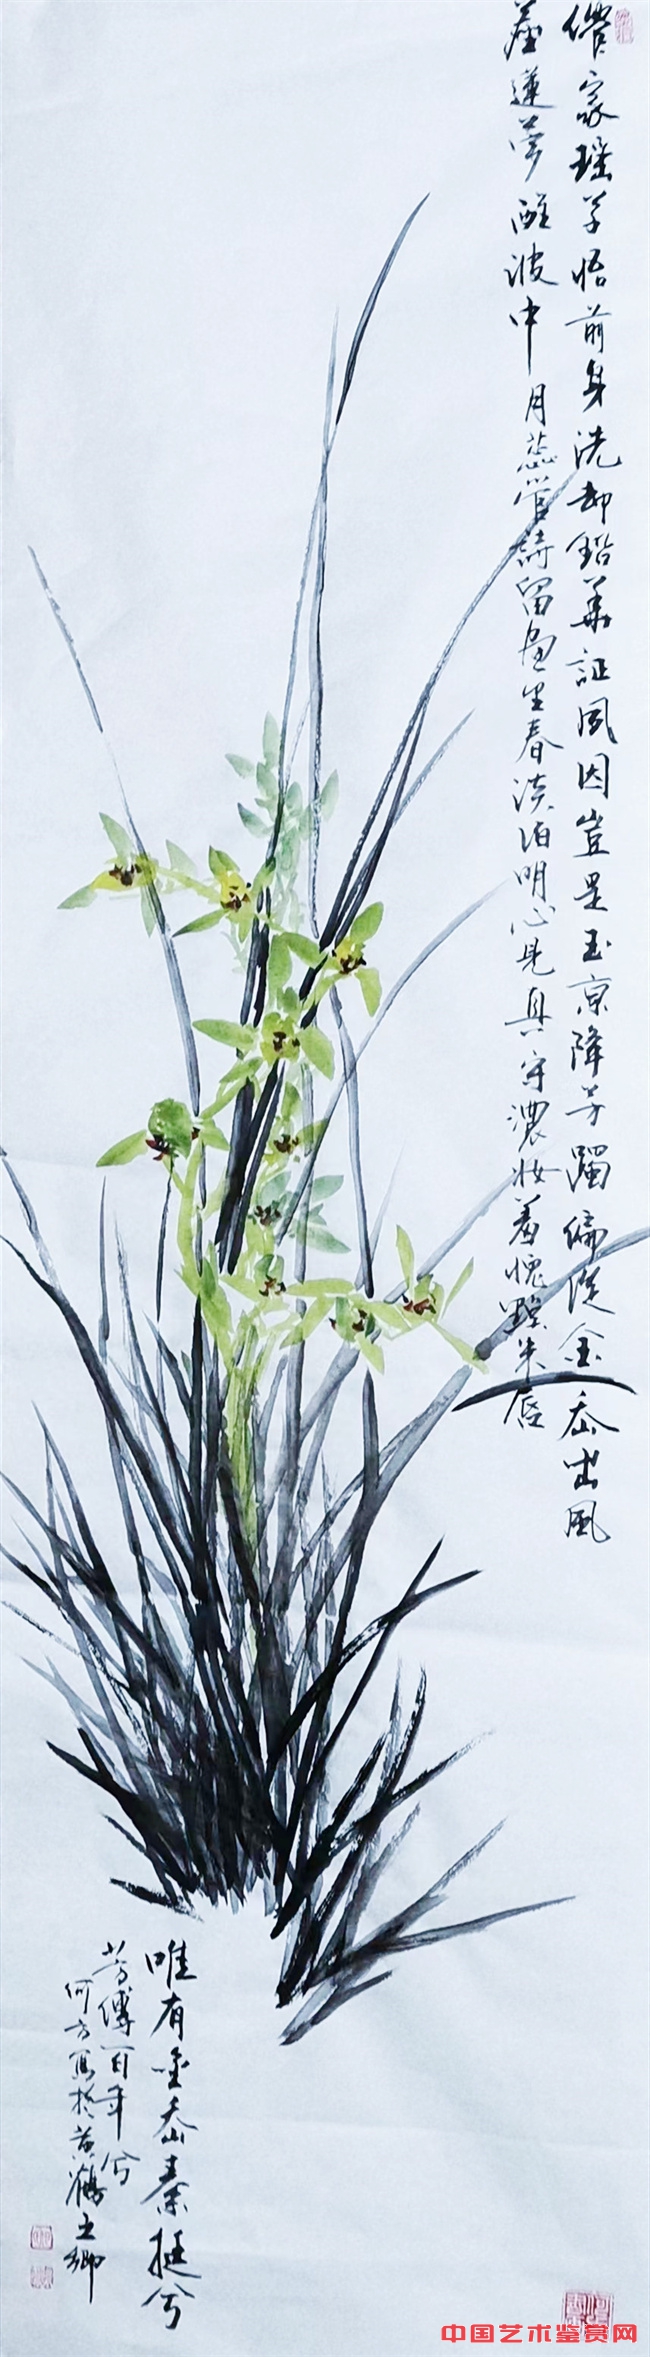 儂家瑶草悟前身洗却鉛華証夙因豈是玉京降芳躅偏從金岙出風
塵蓮夢醒波中月蕊管詩留画里春淡泊明心見真守濃妝羞愧點朱唇
唯有金岙素挺兮
芳傳百年兮
何方寫於黄鶴之鄉
中国艺术鉴赏网